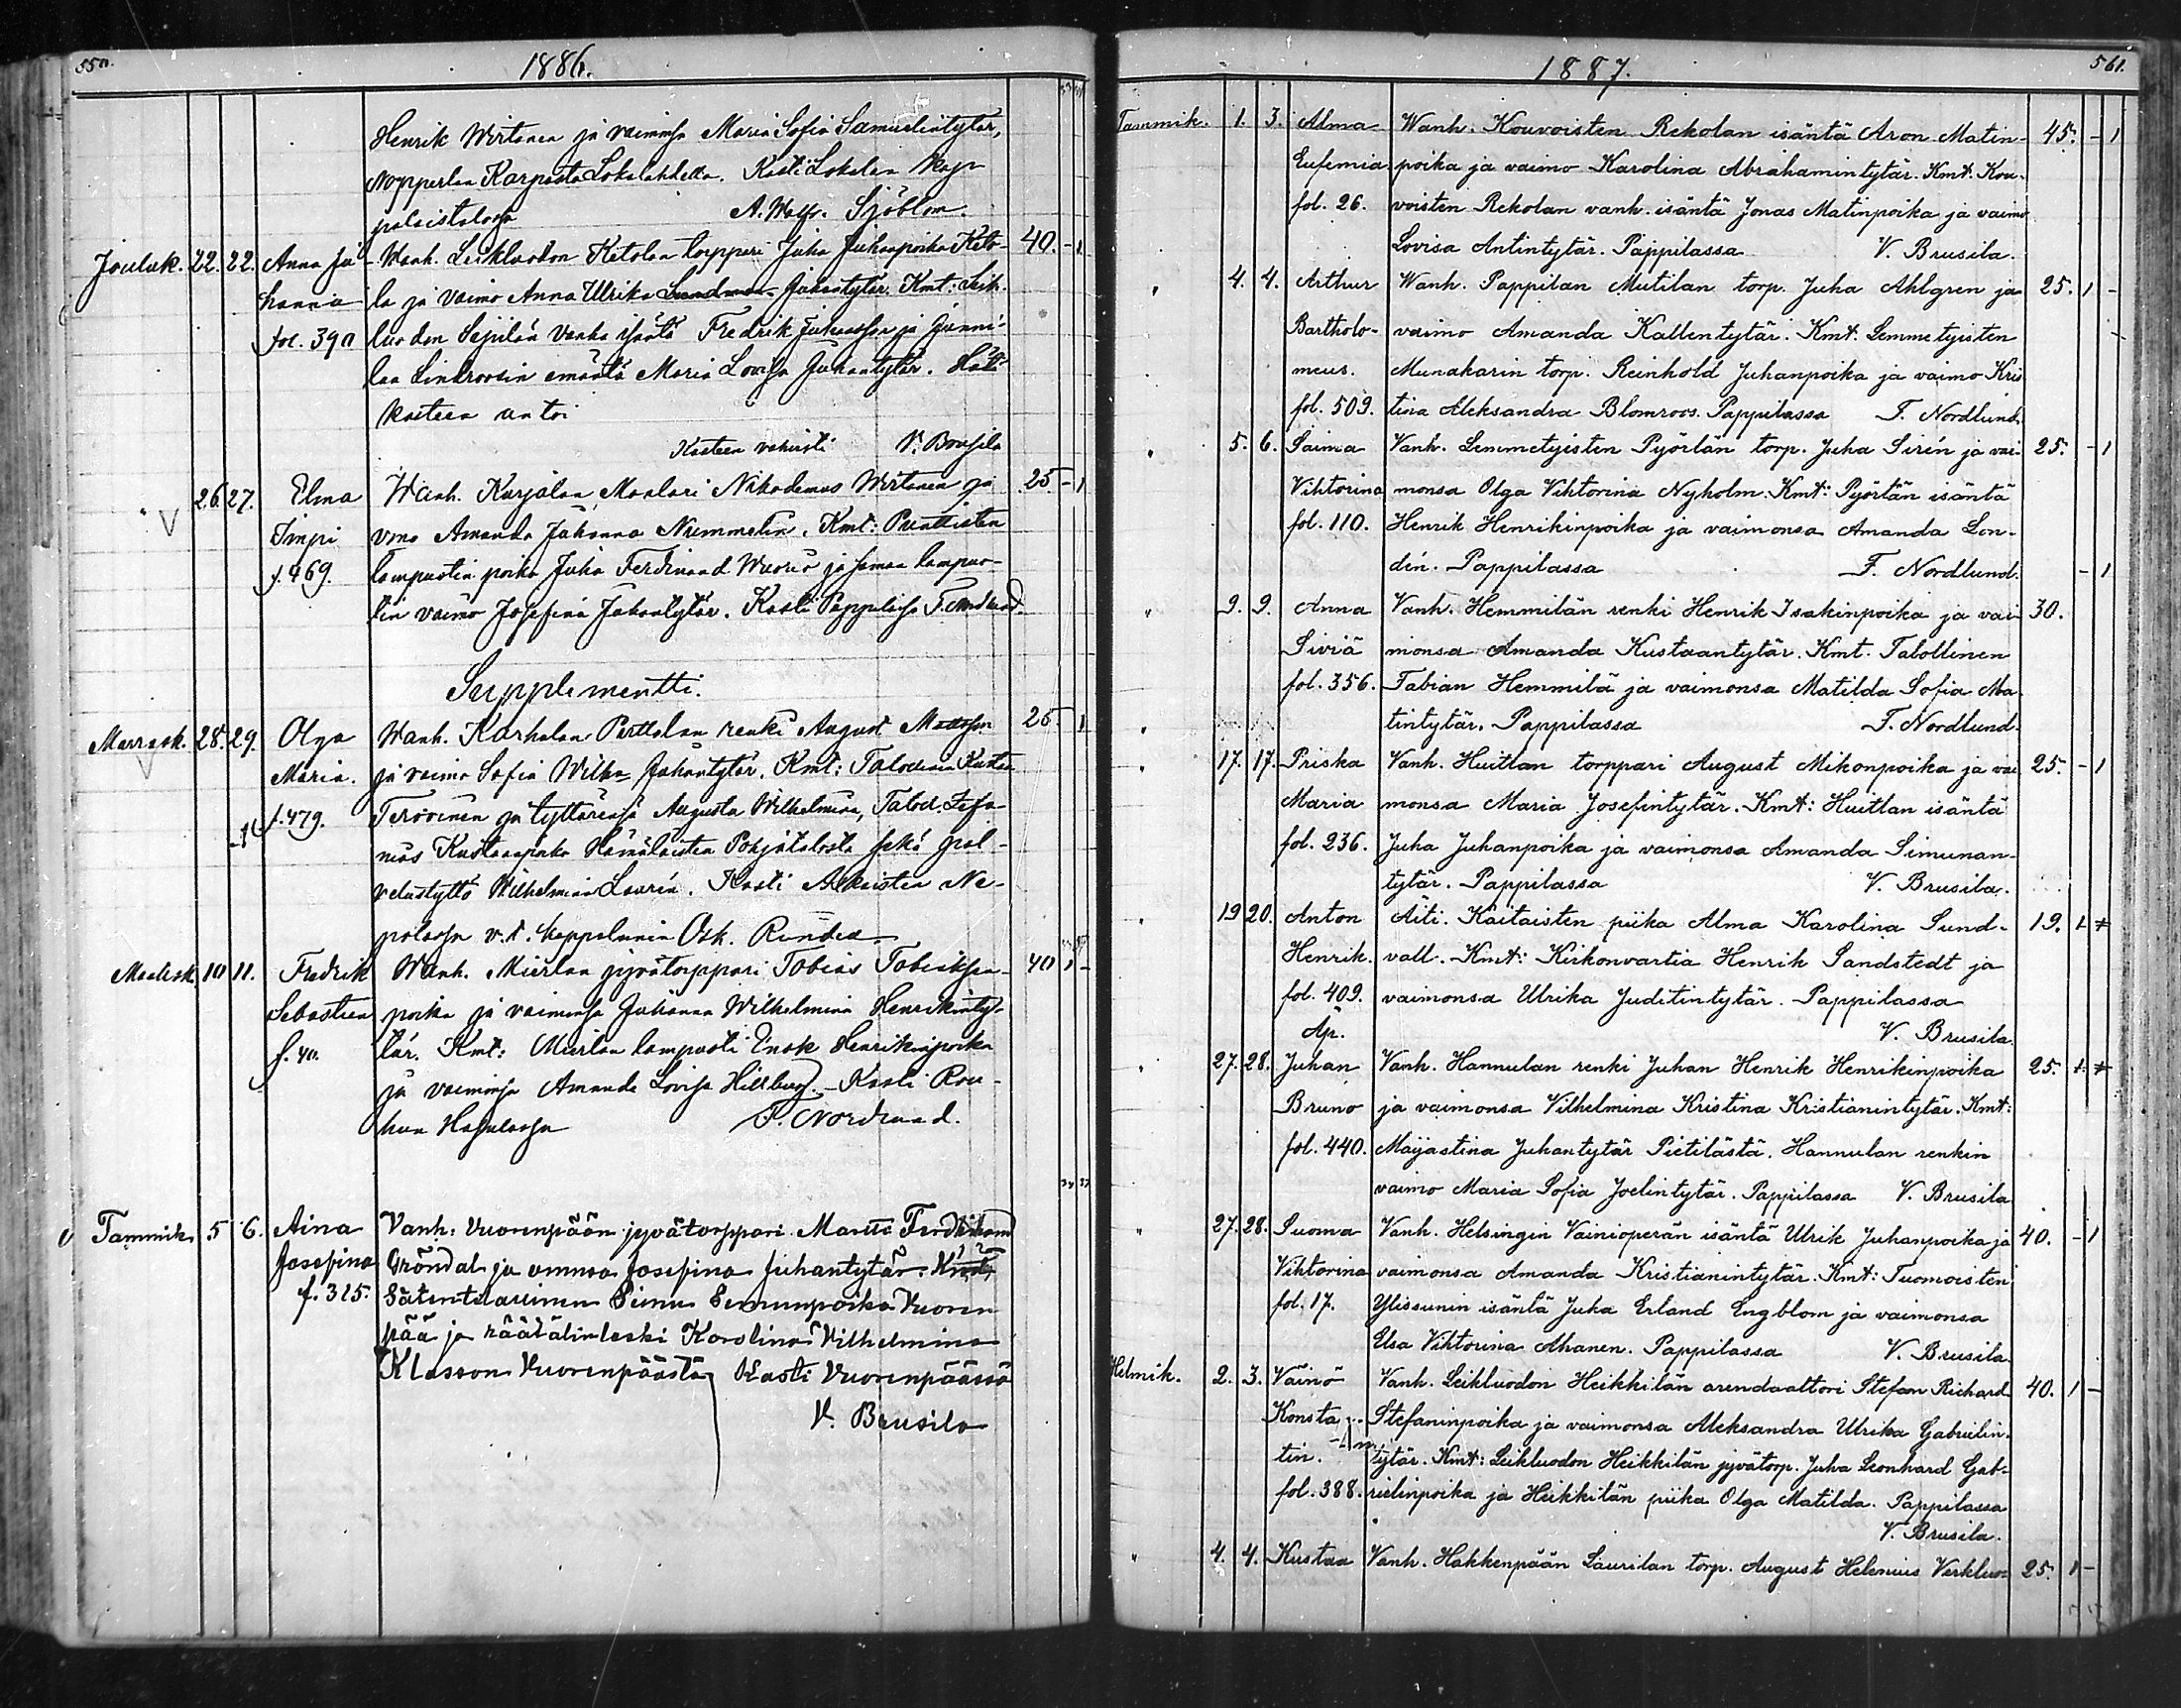 550.
1886.
Henrik Wirtanen ja vaimonsa Maria Sofia Samuelintytär,
Nopperlan Karpasta Lokalahdella. Kasti Lokalan kap-
palaistalossa A. Walfr. Sjöblom.
Jouluk. 22. 22. Anna Jo- Wanh. Leikluodon Ketolan torppari Juha Juhanpoika Keto- 40. - 1
hanna la ja vaimo Anna Ulrika Juhantytär. Kmt: Leik-
fol. 390 luodon Seppilän vanha isäntä Fredrik Juhansson ja
lan Lindroosin emäntä Maria Lovisa Juhantytär. Hätä
kasteen antoi
Kasteen vahvisti V. Brusila
" 26. 27. Elma Wanh. Karjalan Maalari Nikodemus Wirtanen ja 25 - 1
Impi vmo Amanda Johanna Nummelin. Kmt: Punttisten
f. 469. lampuotin poika Juha Ferdinand Wuorio ja saman lampuo-
tin vaimo Josefina Juhantytär. Kasti Pappilassa F. Nordlund.
Supplimentti.
Marrask. 28. 29. Olga Wanh. Karhulan Perttolan renki August Mattsson 25. - 1
Maria. ja vaimo Sofia Wilh. Juhantytär. Kmt: Talollinen Kustaa
f. 479. Tervonen ja tyttärensä Augusta Wilhelmina, Talol. Zefa-
nias Kustaanpoika Hämäläisten Pohjatalosta sekä pal-
velustyttö Wilhelmina Laurén. Kasti Ne-
polassa v.t. kappalainen Osk.
Maalisk. 10 11. Fredrik Wanh. Mierlan jyvätorppari Tobias Tobiaksen- 40 1 -
Sebastian poika ja vaimonsa Juhanna Wilhelmina Henrikinty-
f. 40. tär. Kmt: Mierlan lampuoti Enok Henrikinpoika
ja vaimonsa Amanda Lovisa Hellberg. Kasti Rou-
hun F. Nordlund.
Tammik. 5 6. Aina Vanh: Vuorenpään jyvätorppari Martti Ferdinand
Josefina Gröndal ja vmonsa Josefina Juhantytär.
f. 315. Simu Simunpoika Vuoren
pää ja räätälin leski Karolina Vilhelmina
Klasson Vuorenpäästä Kasti Vuorenpäässä
V. Brusila
1887.
561.
Tammik. 1. 3. Alma Wanh. Kouvoisten Rekolan isäntä Aron Matin- 45. - 1
Eufemia poika ja vaimo Karolina Abrahamintytär. Kmt. Kou-
fol. 26. voisten Rekolan vanh. isäntä Jonas Matinpoika ja vaimo
Lovisa Antintytär. Pappilassa V. Brusila.
" 4. 4. Arthur Wanh. Pappilan Mutilan torp. Juha Ahlgren ja 25. 1 -
Bartholo- vaimo Amanda Kallentytär. Kmt. Lemmetyisten
meus. Munakarin torp. Reinhold Juhanpoika ja vaimo Kris-
fol. 509. tina Aleksandra Blomroos. Pappilassa F. Nordlund.
" 5. 6. Saima Vanh. Lemmetyisten Pyörlän torp. Juha Sirén ja vai- 25. - 1
Vihtorina monsa Olga Vihtorina Nyholm. Kmt: Pyörlän isäntä
fol. 110. Henrik Henrikinpoika ja vaimonsa Amanda Lon-
dén. Pappilassa F. Nordlund. - 1
" 9. 9. Anna Vanh. Hemmilän renki Henrik Isakinpoika ja vai- 30.
Siviä monsa Amanda Kustaantytär. Kmt. Talollinen
fol. 356. Fabian Hemmilä ja vaimonsa Matilda Sofia Ma-
tintytär. Pappilassa F. Nordlund.
" 17. 17. Priska Vanh. Huittan torppari August Mikonpoika ja vai- 25. - 1
Maria monsa Maria Josefintytär. Kmt: Huittan isäntä
fol. 236. Juha Juhanpoika ja vaimonsa Amanda Simunan-
tytär. Pappilassa V. Brusila.
" 19 20. Anton Äiti. Kaitaisten piika Alma Karolina Sund- 19.
Henrik. vall. Kmt: Kirkonvartia Henrik Sandstedt ja
fol. 409. vaimonsa Ulrika Juditintytär. Pappilassa
Äp. V. Brusila.
" 27. 28. Juhan Vanh. Hannulan renki Juhan Henrik Henrikinpoika 25.
Bruno ja vaimonsa Vilhelmina Kristina Kristianintytär. Kmt:
fol. 440. Maijastina Juhantytär Pietilästä. Hannulan renkin
vaimo Maria Sofia Joelintytär. Pappilassa V. Brusila
" 27. 28. Suoma Vanh. Helsingin Vainioperän isäntä Ulrik Juhanpoika ja 40. - 1
Vihtorina vaimonsa Amanda Kristianintytär. Kmt: Tuomoisten
fol. 17. Ylissunin isäntä Juha Erland Engblom ja vaimonsa
Elsa Vihtorina Ahanen. Pappilassa V. Brusila.
Helmik. 2. 3. Väinö Vanh. Leikluodon Heikkilän arendaattori Stefan Richard 40. 1 -
Konsta- Stefaninpoika ja vaimonsa Aleksandra Ulrika Gabrielin-
tin. tytär. Kmt: Leikluodon Heikkilän jyvätorp. Juha Leonhard Gab-
fol. 388. rielinpoika ja Heikkilän piika Olga Matilda. Pappilassa
V. Brusila.
" 4. 4. Kustaa Vanh. Hakkenpään Laurilan torp. August Helenius Verkluo- 25. 1 -